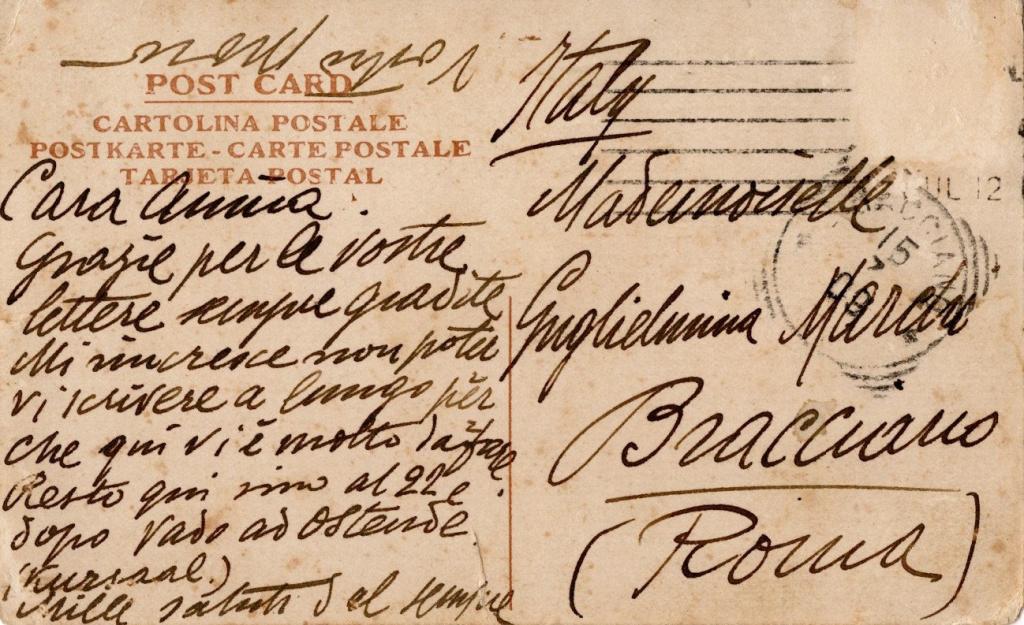 POST CARD
CARTOLINA POSTALE
POSTKARTE - CARTE POSTALE
TARJETA POSTAL
Cara Annina.
Grazie per le vostre
lettere sempre gradite
Mi rincresce non poter
vi scrivere a lungo per
che qui vi è molto da fare.
Resto qui sino al 22 e
dopo vado ad Ostende
(Kursaal.)
Mille saluti dal sempre
vostro
Italy
Mademoiselle
Guglielmina
Bracciano
(Roma)
JUL 12
BRACCIANO
15